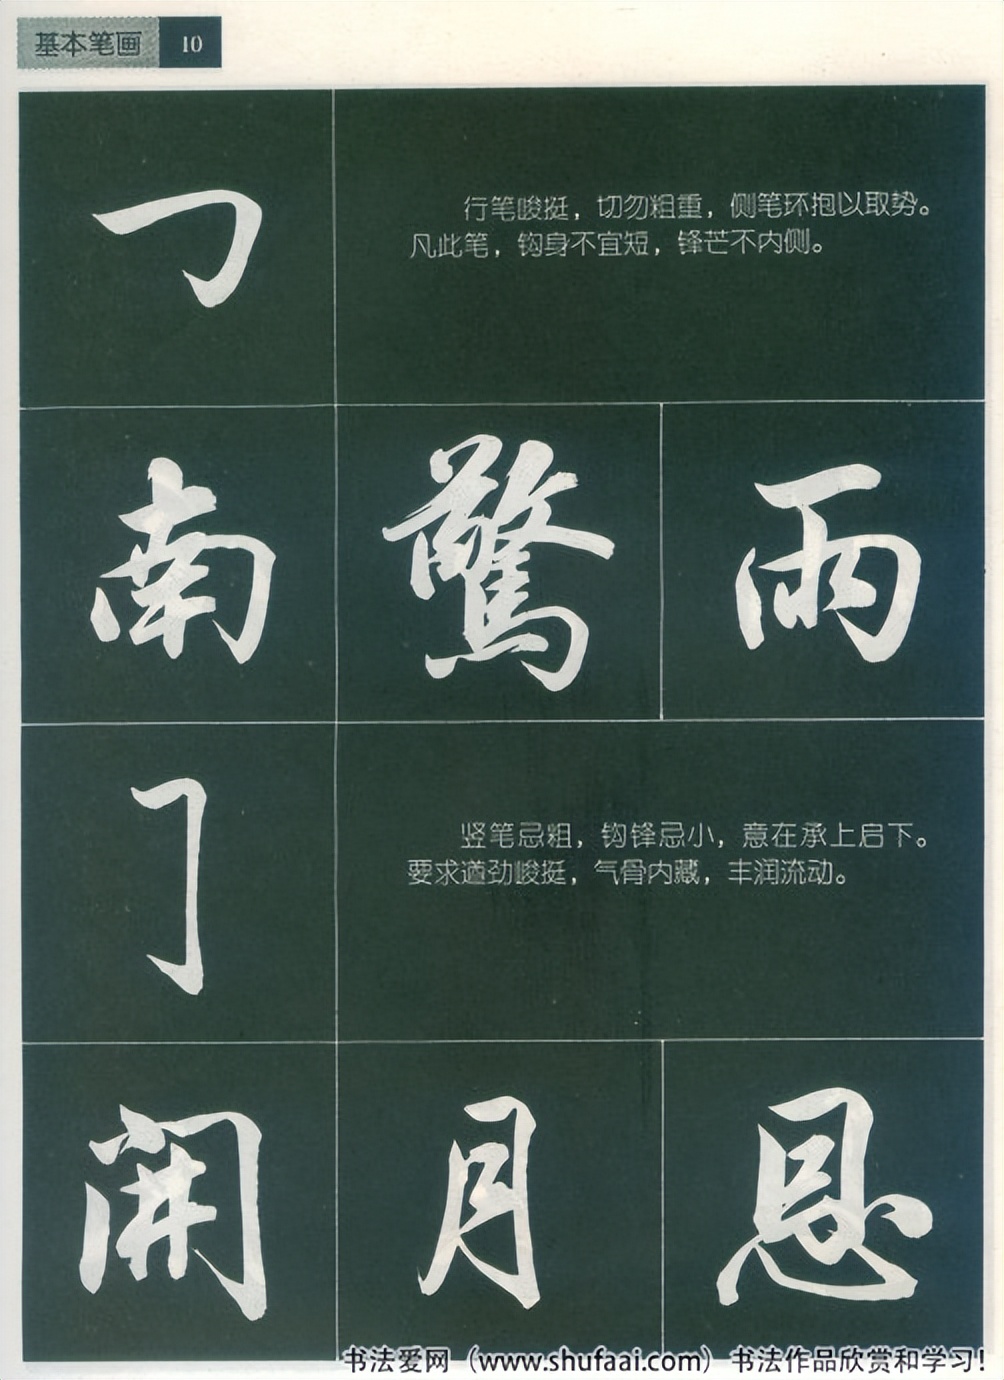 基本笔画 10
行笔峻挺，切勿粗重，侧笔环抱以取势。
凡此笔，钩身不宜短，锋芒不内侧。
南 驚 雨
竖笔忌粗，钩锋忌小，意在承上启下。
要求遒劲峻挺，气骨内藏，丰润流动。
開 月 恩
书法爱网（www.shufaai.com）书法作品欣赏和学习！